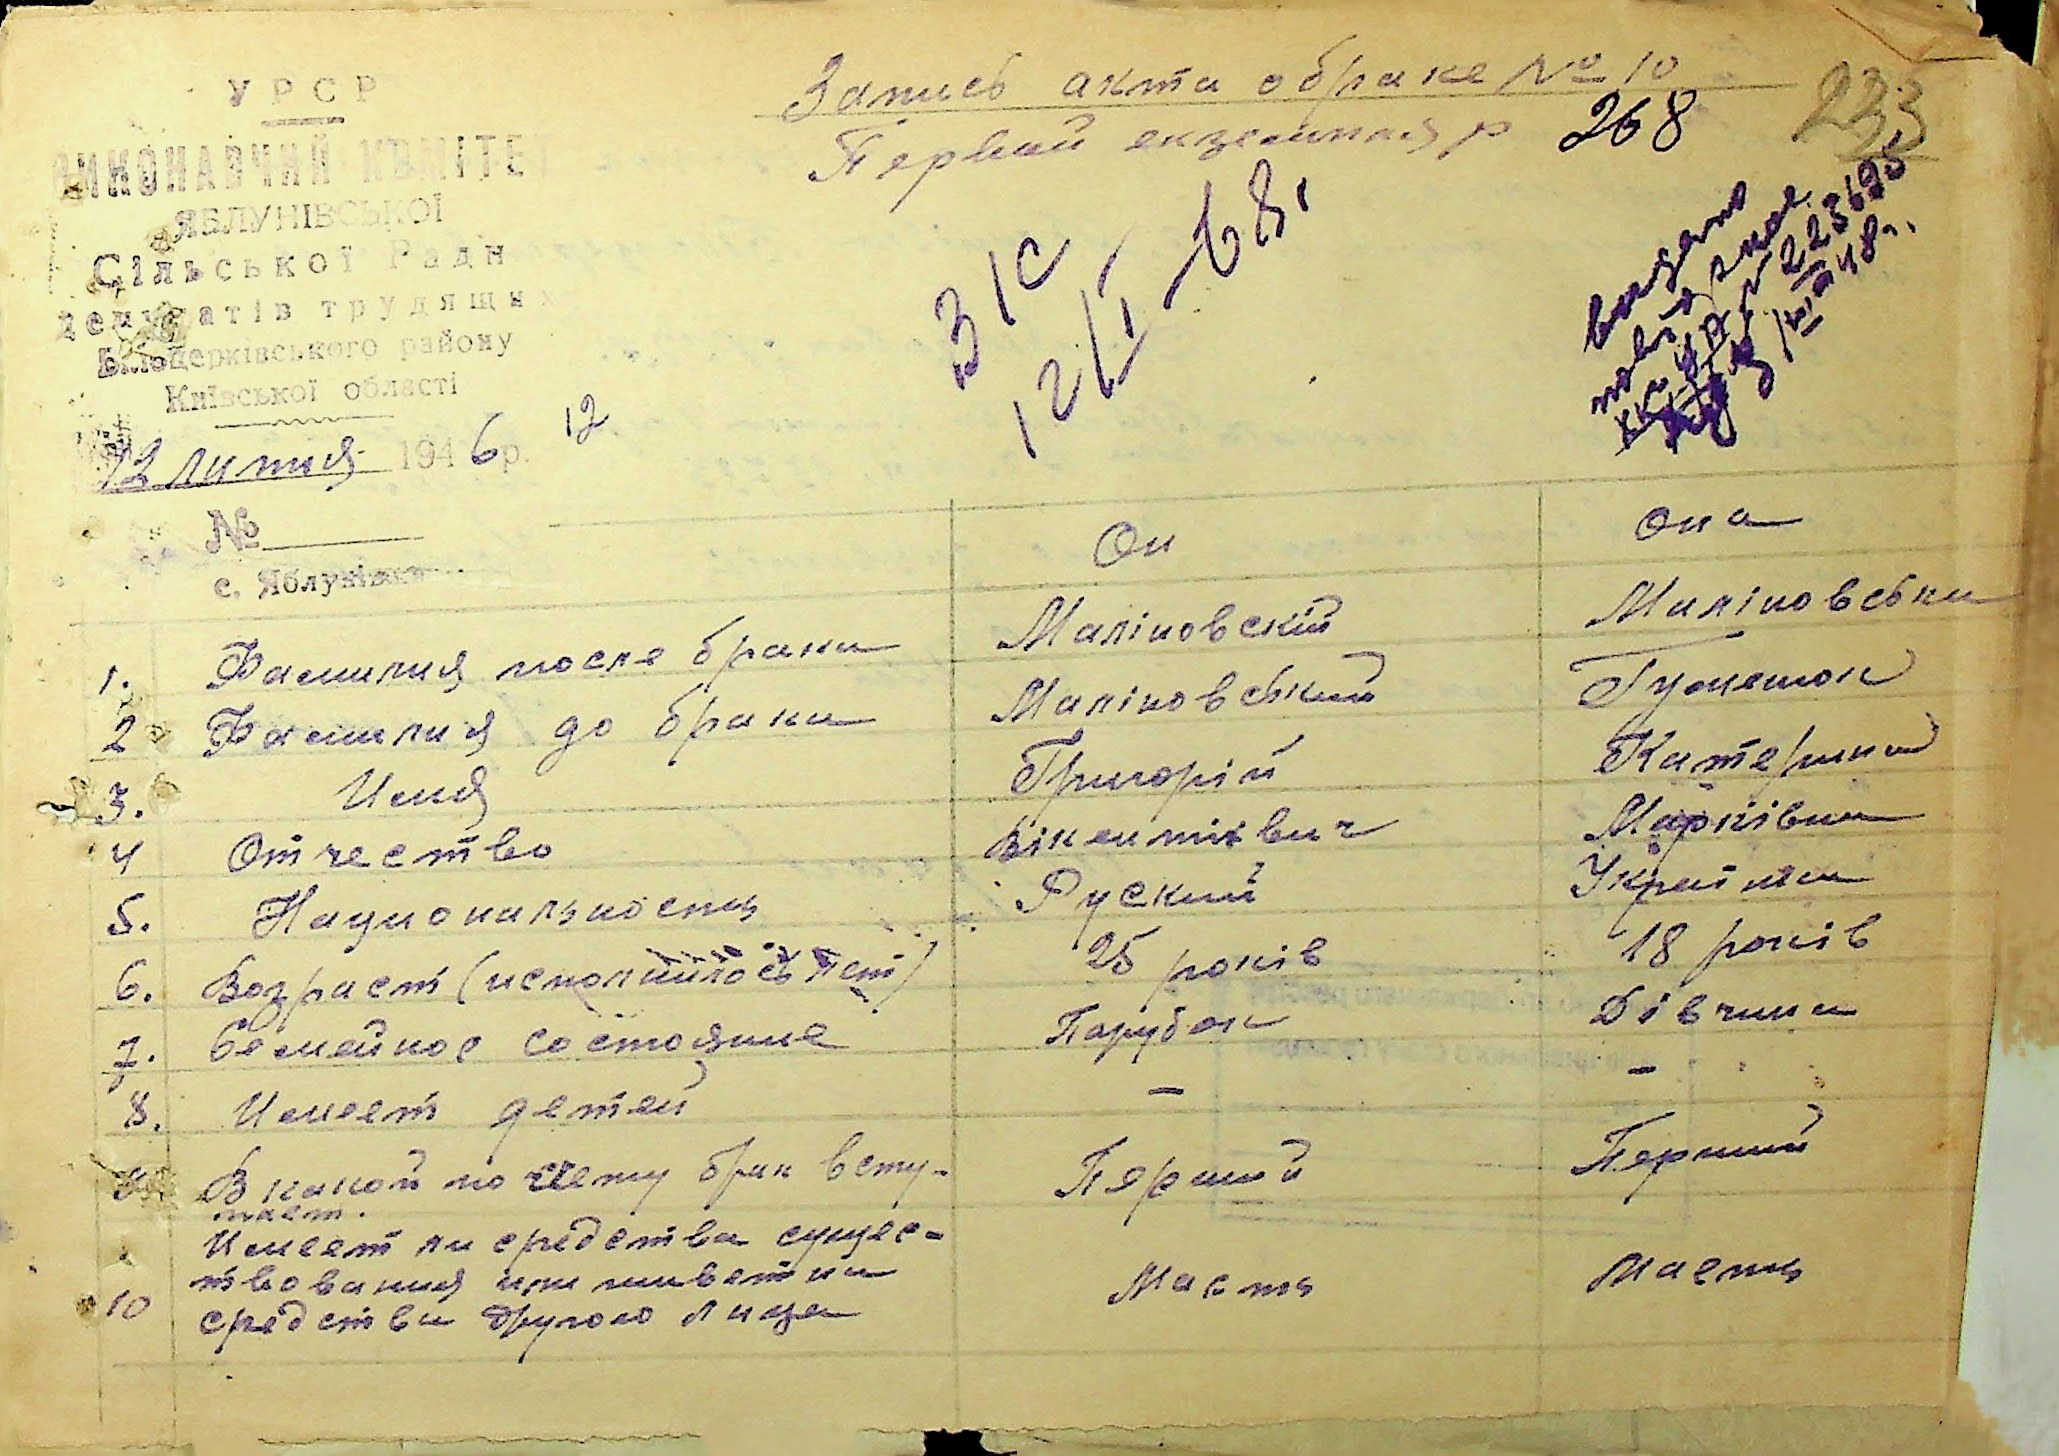 УРСР
ВИКОНАВЧИЙ КОМІТЕТ
ЯБЛУНІВСЬКОЇ
Сільської Ради
депутатів трудящих
Білоцерківського району
Київської області
13 липня 1946 р.
12
№
с. Яблунівка
Запись акта о браке № 10
Первый екземпляр
268
233
ЗІС
12/I-68.
выдано
Он
Она
1. Фамилия после брака Маліновский Маліновська
2 Фамилия до брака Маліновський
3. Имя Григорій Катерина
4 Отчество Вікентієвич Марківна
5. Национальность Руский Українка
6. Возраст (исполнилось лет) 25 років 18 років
7. Семейное состояние Парубок Дівчина
8. Имеет детей - -
9. В какой по счету брак всту-
пает. Перший Перший
Имеет ли средства сущес-
твования или живет на
10 средства другого лица Маєть Маєть